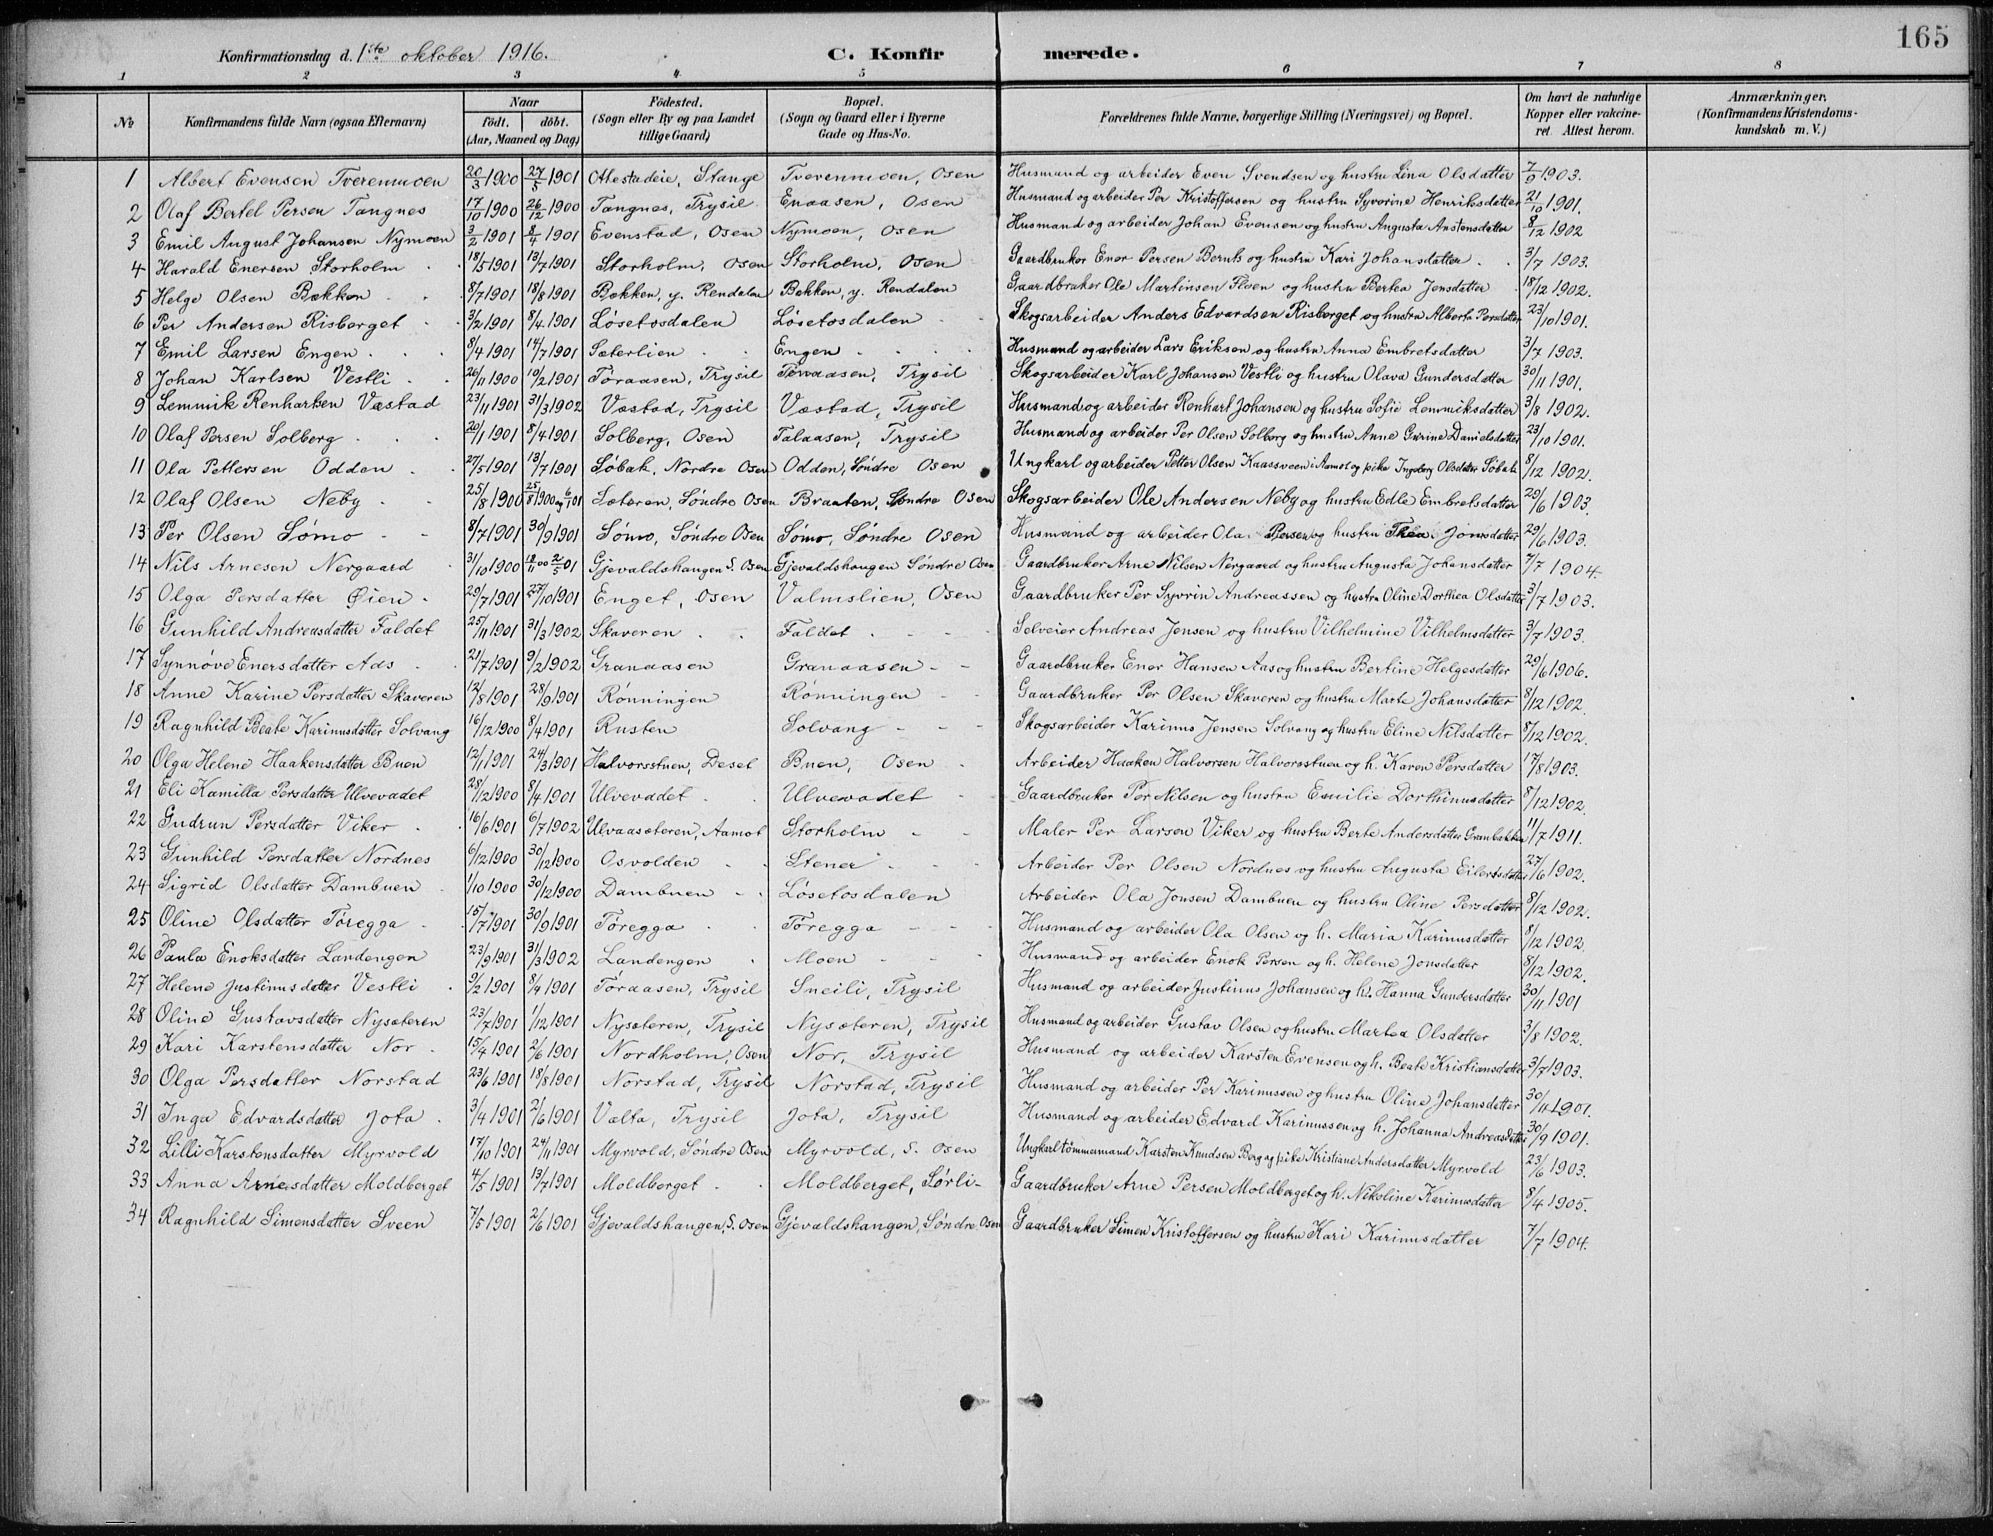 165
Konfirmationsdag d. 1ste oktober 1916. C. Konfirmerede.
1 2 3 4 5 6 7 8
No. Konfirmandens fulde Navn (ogsaa Efternavn) Naar födt. döbt. (Aar, Maaned og Dag) Födested. (Sogn eller By og paa Landet tillige Gaard) Bopæl. (Sogn og Gaard eller i Byerne Gade og Hus-No. Forældrenes fulde Navne, borgerlige Stilling (Næringsvei) og Bopæl. Om havt de naturlige Kopper eller vakcineret. Attest herom. Anmærkninger. (Konfirmandens Kristendomskundskab m. V.)
1 Albert Evensen Tverenmoen 20/3 1900 27/5 1901 Stange Tverenmoen, Osen Husmand og arbeider Even Svendsen og hustru Lina Olsdatter 7/9 1903.
2 Olaf Bertel Persen Tangnes 17/10 1900 26/12 1900 Tangnes, Trysil Enaasen, Osen Husmand og arbeider Per Kristoffersen og hustru Syverine Henriksdatter 21/10 1901.
3 Emil August Johansen Nymoen 3/2 1901 8/4 1901 Evenstad, Osen Nymoen, Osen Husmand og arbeider Johan Evensen og hustru Augusta Anstensdatter 8/12 1902
4 Harald Enersen Storholm 18/5 1901 13/7 1901 Storholm, Osen Storholm, Osen Gaardbruker Ener Persen Bernts og hustru Kari Johansdatter 3/7 1903.
5 Helge Olsen Bækken 8/7 1901 18/8 1901 Bækken, y. Rendalen Bekken, y. Rendalen Gaardbruker Ole Martinsen Floen og hustru Bertea Jensdatter 18/12 1902.
6 Per Andersen Risberget 3/2 1901 8/4 1901 Løsetosdalen Løsetosdalen Skogsarbeider Anders Edvardsen Risberget og hustru Alberta Persdatter 23/10 1901.
7 Emil Larsen Engen 8/4 1901 14/7 1901 Sæterlien Engen Husmand og arbeider Lars Eriksen og hustru Anna Embretsdatter 3/7 1903.
8 Johan Karlsen Vestli 26/11 1900 10/2 1901 Tøraasen, Trysil Tøraasen, Trysil Skogsarbeider Karl Johansen Vestli og hustru Olava Gundersdatter 30/11 1901.
9 Lemmik Renhartsen Væstad 23/11 1901 31/3 1902 Væstad, Trysil Væstad, Trysil Husmand og arbeider Renhart Johansen og hustru Sofie Lemmiksdatter 3/8 1902.
10 Olaf Persen Solberg 20/1 1901 8/4 1901 Solberg, Osen Talaasen, Trysil Husmand og arbeider Per Olsen Solberg og hustru Anne Gurine Danielsdatter 23/10 1901.
11 Ola Pettersen Odden 27/5 1901 13/7 1901 Søbak, Nordre Osen Odden, Søndre Osen Ungkarl og arbeider Petter Olsen Kaassveen i Aamot og pike Ingeborg Olsdatter Søbak 8/12 1902.
12 Olaf Olsen Neby 25/8 1900 25/8 1900 og 6/1 01 Sæteren, Søndre Osen Braaten, Søndre Osen Skogsarbeider Ole Andersen Neby og hustru Edle Embretsdatter 29/6 1903.
13 Per Olsen Sømo 8/7 1901 30/9 1901 Sømo, Søndre Osen Sømo, Søndre Osen Husmand og arbeider Ola Persen og hustru Thea Jonsdatter 29/6 1903.
14 Nils Arnesen Nergaard 31/10 1900 18/11 00 2/5 01 Gjevaldshaugen S. Osen Gjevaldshaugen Søndre Osen Gaardbruker Arne Nilsen Nergaard og hustru Augusta Johansdatter 7/7 1904.
15 Olga Persdatter Øien 29/7 1901 27/10 1901 Enget, Osen Valmslien, Osen Gaardbruker Per Syvrin Andreassen og hustru Oline Dorthea Olsdatter 3/7 1903.
16 Gunhild Andreasdatter Faldet 25/11 1901 31/3 1902 Skaveren Faldet Selveier Andreas Jensen og hustru Vilhelmine Vilhelmsdatter 3/7 1903.
17 Synnøve Enersdatter Aas 21/7 1901 9/2 1902 Granaasen Granaasen Gaardbruker Ener Hansen Aas og hustru Bertine Helgesdatter 29/6 1906.
18 Anne Karine Persdatter Skaveren 12/8 1901 28/9 1901 Rønningen Rønningen Gaardbruker Per Olsen Skaveren og hustru Marte Johansdatter 8/12 1902.
19 Ragnhild Beate Karinusdatter Solvang 16/12 1900 8/4 1901 Rusten Solvang Skogsarbeider Karinus Jensen Solvang og hustru Eline Nilsdatter 8/12 1902.
20 Olga Helene Haakensdatter Buen 12/1 1901 24/3 1901 Halvorsstuen, Deset Buen, Osen Arbeider Haaken Halvorsen Halvorsstuen og h. Karen Persdatter 17/8 1903.
21 Eli Kamilla Persdatter Ulvevadet 28/12 1900 8/4 1901 Ulvevadet Ulvevadet Gaardbruker Per Nilsen og hustru Emilie Dorthinusdatter 8/12 1902.
22 Gudrun Persdatter Viker 16/6 1901 6/7 1902 Ulvaasæteren, Aamot Storholm Maler Per Larsen Viker og hustru Berte Andersdatter Granbakken 11/7 1911.
23 Gunhild Persdatter Nordnes 6/12 1900 30/12 1900 Osvolden Stener Arbeider Per Olsen Nordnes og hustru Augusta Eilertsdatter 27/6 1902.
24 Sigrid Olsdatter Dambuen 1/10 1900 30/12 1900 Dambuen Løsetosdalen Arbeider Ola Jonsen Dambuen og hustru Oline Persdatter 8/12 1902.
25 Oline Olsdatter Tøregga 15/7 1901 30/9 1901 Tøregga Tøregga Husmand og arbeider Ola Olsen og h. Maria Karinusdatter 8/12 1902
26 Paula Enoksdatter Landengen 23/9 1901 31/3 1902 Landengen Moen Husmand og arbeider Enok Persen og h. Helene Jonsdatter 8/12 1902.
27 Helene Justinusdatter Vestli 9/2 1901 8/4 1901 Tøraasen, Trysil Sneili, Trysil Husmand og arbeider Justinus Johansen og h. Hanna Gundersdatter 30/11 1901
28 Oline Gustavsdatter Nysæteren 23/7 1901 1/12 1901 Nysæteren, Trysil Nysæteren, Trysil Husmand og arbeider Gustav Olsen og hustru Martea Olsdatter 3/8 1902.
29 Kari Karstensdatter Nor 15/4 1901 2/6 1901 Nordholm, Osen Nor, Trysil Husmand og arbeider Karsten Evensen og h. Beate Kristiansdatter 3/7 1903.
30 Olga Persdatter Norstad 23/6 1901 18/8 1901 Norstad, Trysil Norstad, Trysil Husmand og arbeider Per Karinussen og hustru Oline Johansdatter 30/11 1901.
31 Inga Edvardsdatter Jota 3/4 1901 2/6 1901 Valta, Trysil Jota, Trysil Husmand og arbeider Edvard Karinussen og h. Johanna Andreasdatter 30/9 1901.
32 Lilli Karstensdatter Myrvold 17/10 1901 24/11 1901 Myrvold, Søndre Osen Myrvold, S. Osen Ungkarl tømmermand Karsten Knudsen Berg og pike Kristiane Andersdatter Myrvold 23/6 1903.
33 Anna Arnesdatter Moldberget 4/5 1901 13/7 1901 Moldberget Moldberget, Sørli Gaardbruker Arne Persen Moldberget og h. Nikoline Karinusdatter 8/4 1905.
34 Ragnhild Simensdatter Sveen 7/5 1901 2/6 1901 Gjevaldshaugen, S. Osen Gjevaldshaugen, Søndre Osen Gaardbruker Simen Kristoffersen og hustru Kari Karinusdatter 7/7 1904.